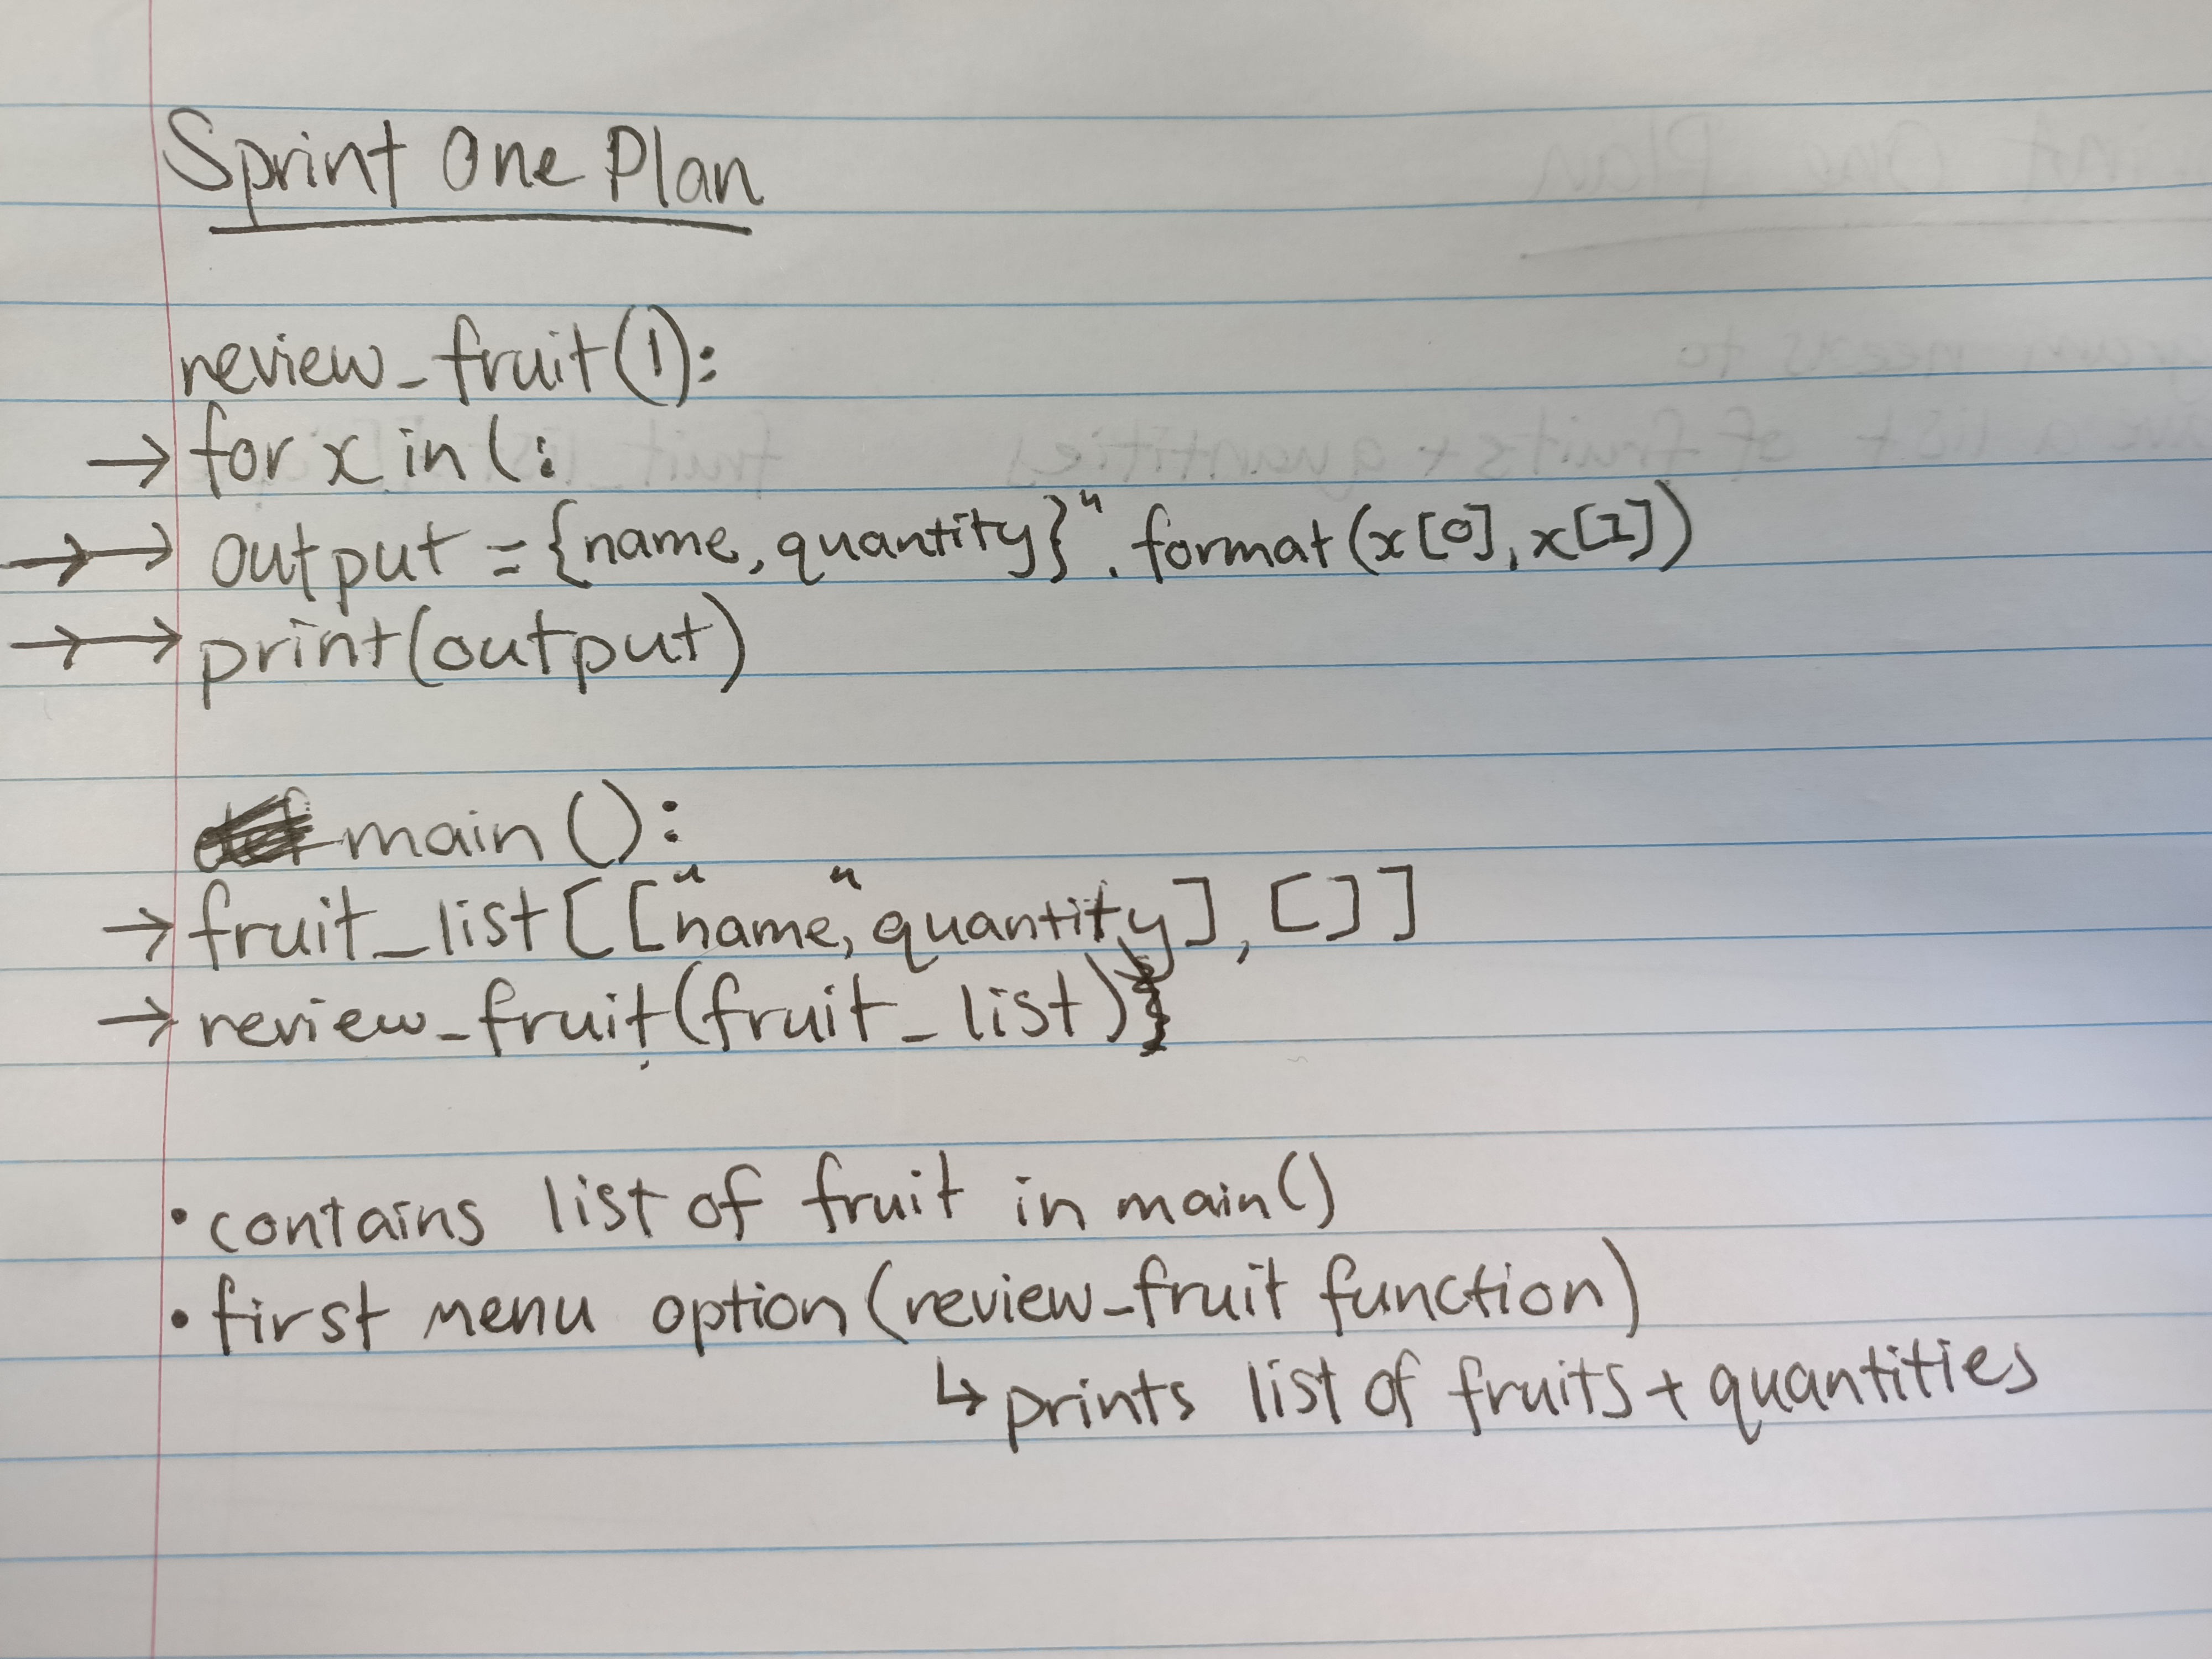 Sprint One Plan
review_fruit(l):
→ for x in l:
→→ output = {name, quantity}". format(x[0], x[1])
→→ print(output)
main():
→ fruit_list[["name", quantity], []]
→ review_fruit(fruit_list)
• contains list of fruit in main()
• first menu option (review_fruit function)
↳ prints list of fruits + quantities